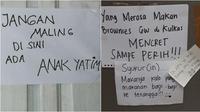 JANGAN
MALING
DI SINI
ADA
ANAK YATIM
Yang Merosa Makan
Brownies GW di Kulkas
MENCRET
SAMPE PERIH!!!
Syukur(in)
Makanya kalo
makanan bagi-bagi
ke tetangga!!